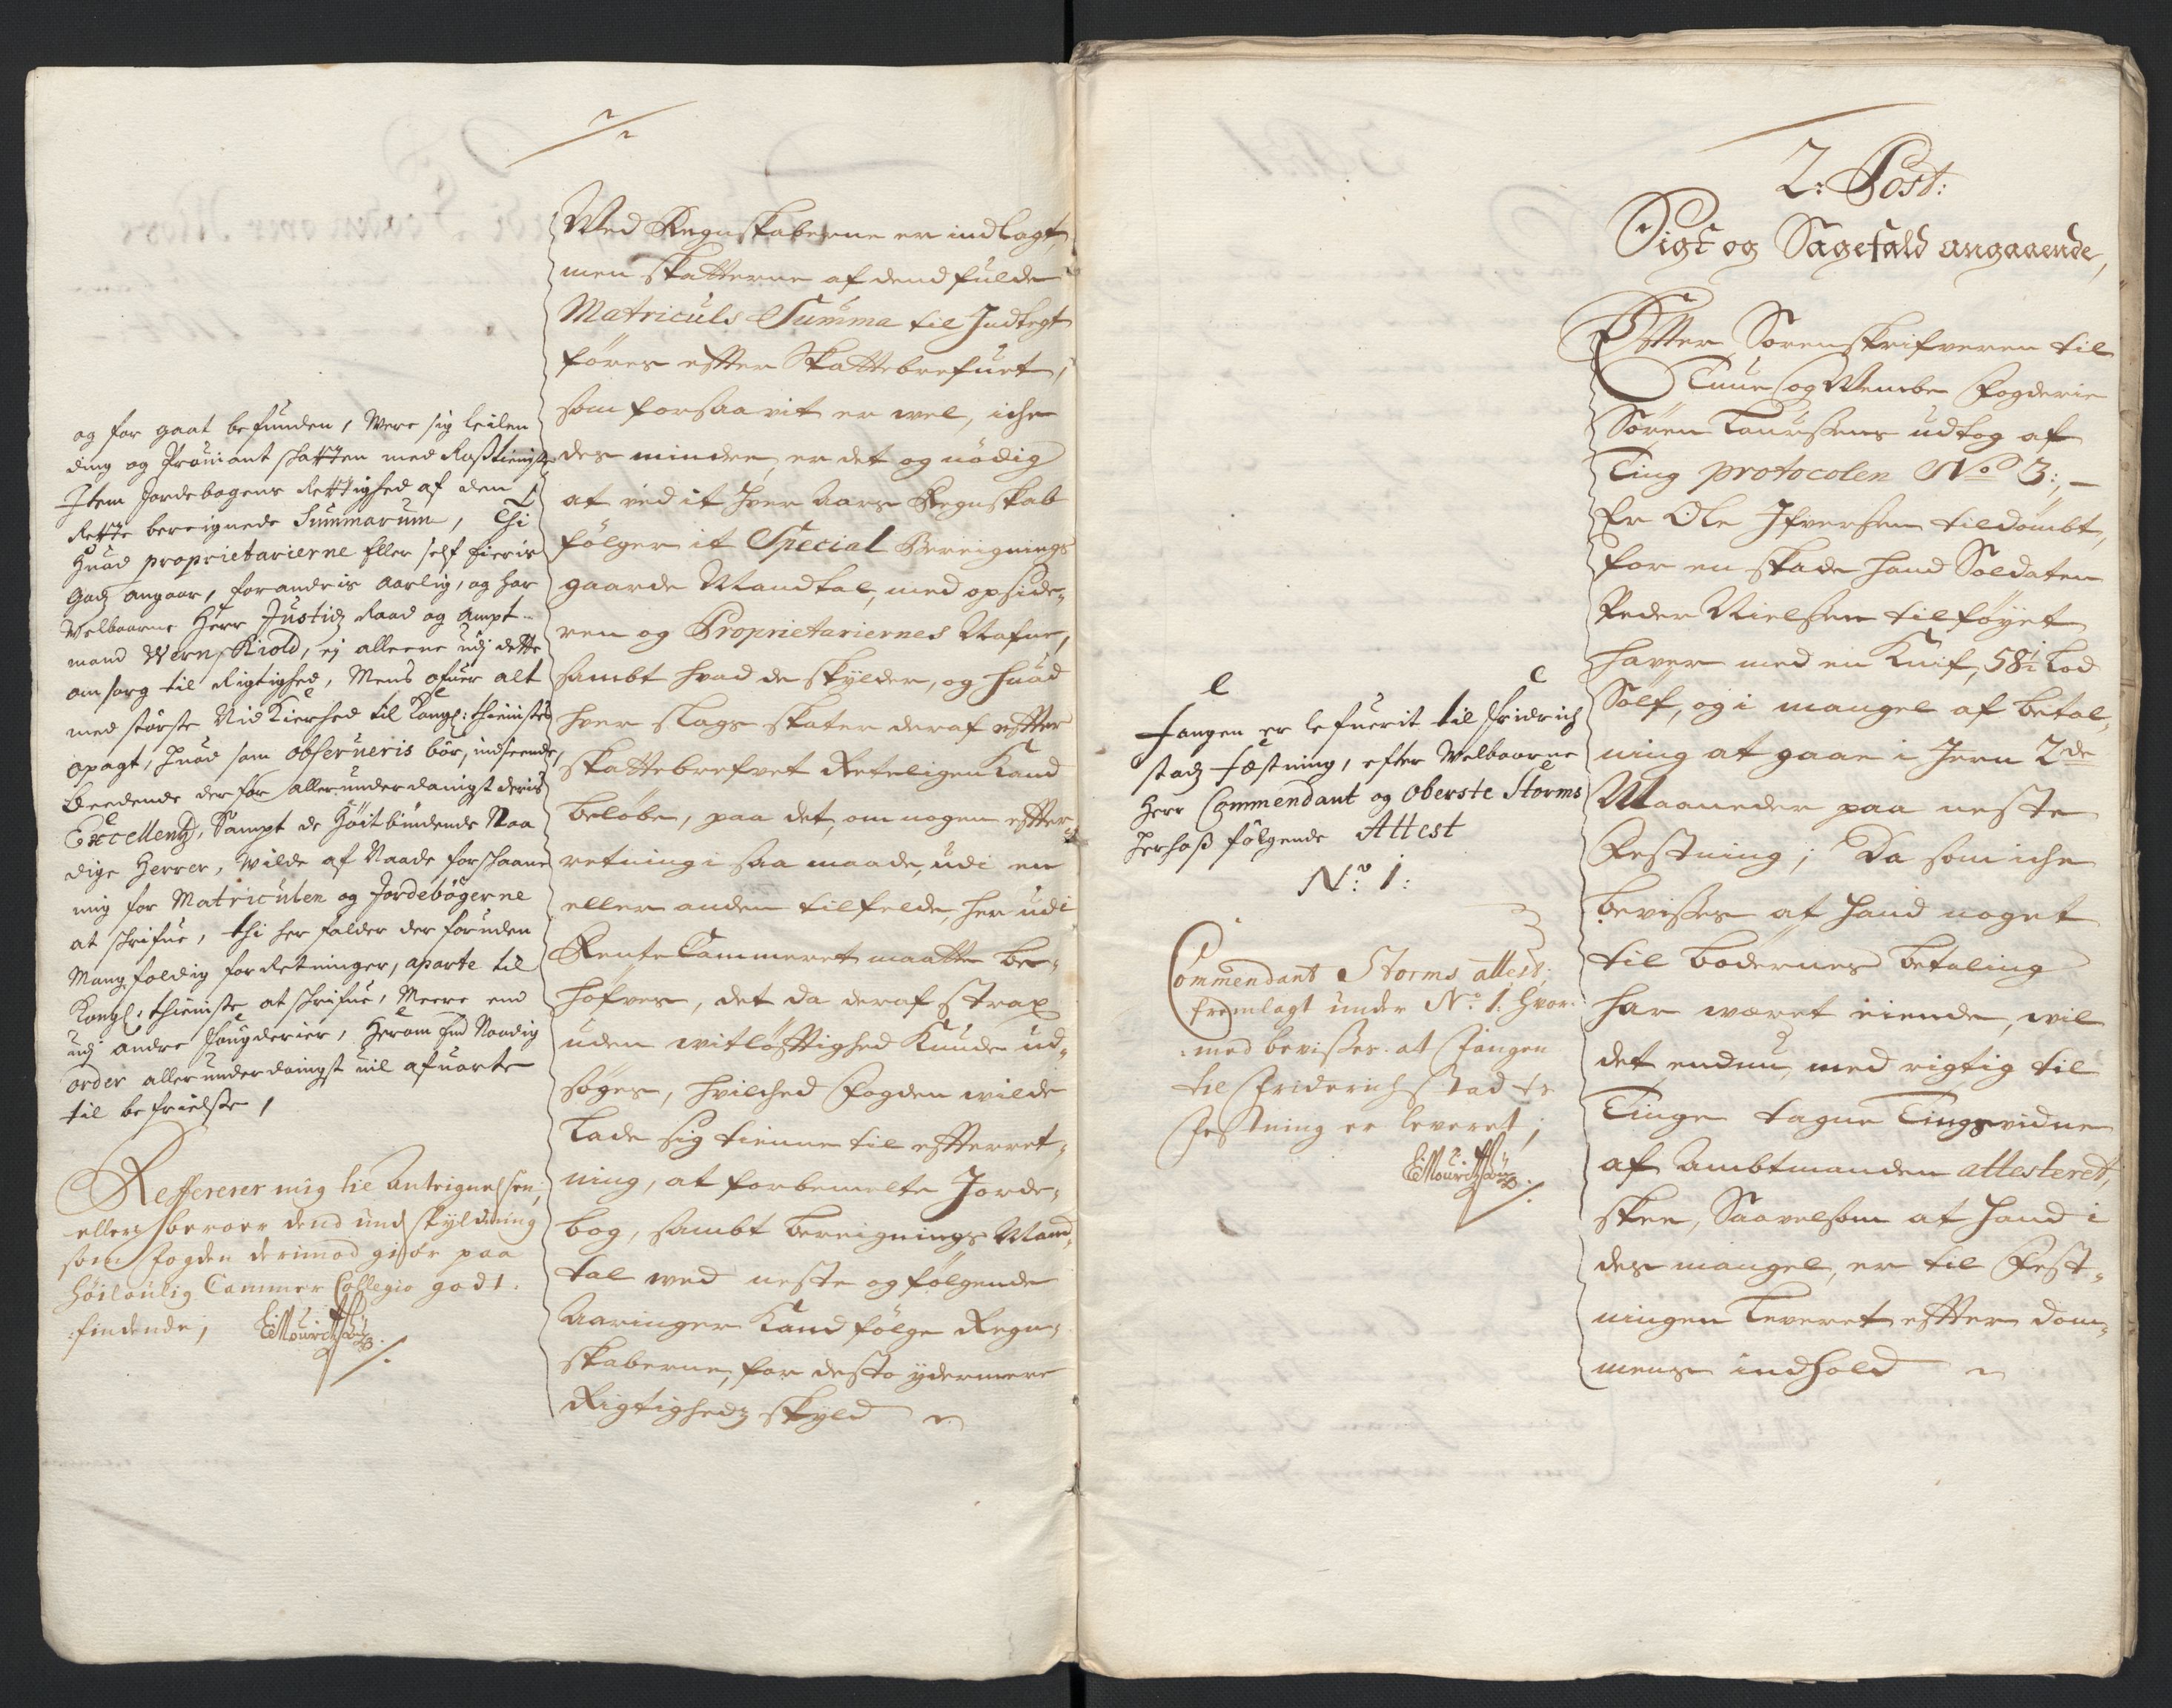 og for gaat befunden, Være sig leilen
ding og Proviant skatten med Rosstieniste
Item Jordebogens Rettighed af den
Rette bereignede Summarum, Thi
Huad proprietarierne Eller self Eieris
Godz angaar, forandris aarlig, og har
Velbaarne Herr Justidz Raad og Ampt-
mand Wernskiold, ej alleene udj dette
omsorg til Rigtighed, Mens ofuer alt
med störste Nid Kierhed til Kongl: thieniste
opagt, huad som observeris bör, indseende,
Beedende derfor allerunderdanigst deris
Excellentz, Sampt de Höitbiudende Naa
dige Herrer, wilde af Naade forskaane
mig for Matriculen og Jordebögerne
at skrifue, thi her falder der foruden
Mangfoldig forretninger, aparte til
Kongl: thieniste at skrifue, Meere end
udj andre Fougderier, Herom End Naadig
order allerunderdanigst vil afuarte
til befrielse,
Reffererer mig til Anteignelsen,
ellers beroer dend undskyldning
som fogden derimod giör paa
höiloulig Cammer Collegio godt.
findende;
Ved Regnskaberne er indlagt,
men skatterne af dend fulde
Matriculs Summa til Indtegt
föres effter Skattebrefuet,
som forsaavit er vel, iche
des mindre, er det og nödig
at ved it hver Aars Regnskab
fölger it Special Bereignings
gaarde Mandtal, med opside-
ren og Proprietariernes Nafne,
sambt hvad de skylder, og huad
hver slags skater deraf effter
skattebrefvet Reteligen Kand
belöbe, paa det, om nogen effter-
retning i saa maade, udi en
eller anden tilfelde, her udi
Rente Cammeret maatte be-
höfves, det da deraf strax
uden vitlöfftighed Kunde ud-
söges, hvilched Fogden wilde
Lade sig tienne til effterret-
ning, at forbemelte Jorde-
bog, sambt bereignings Mand-
tal ved neste og fölgende
Aaringer Kand fölge Regn-
skaberne, for desto ydermere
Rigtighedz skyld
2: Post:
Sigt og Sagefald angaaende,
Effter Sorenskrifveren til
Tuue og Wembe Fogderie
Sören Laursens udtog af
Ting protocolen No 3:, -
Er Ole Ifversen tildömbt,
for en skade hand Soldaten
Peder Nielsen tilföyet
haver med en Knif, 58½ Lod
Sölf, og i mangel af betal-
ning at gaae i Jern 2de
Maaneder paa neste
Festning; Da som iche
bevisses at hand noget
til bödernes betaling
har wæret eiende, vil
det endnu, med rigtig til
Tinge tagne Tingsvidne
af Ambtmanden attesteret,
skee, Saavelsom at hand i
des mangel, er til Fest-
ningen Leveret effter dom-
mens indhold
Fangen er lefuerit til Fridrich
stadz Fæstning, efter Velbaarne
Herr Commendant og Oberste Storms
Herhoss fölgende Attest
No: 1:
Commendant Storms attest,
fremlagt under No. 1. hvor-
med bevisses at Fangen
til Friderichstadts
Festning er leveret;